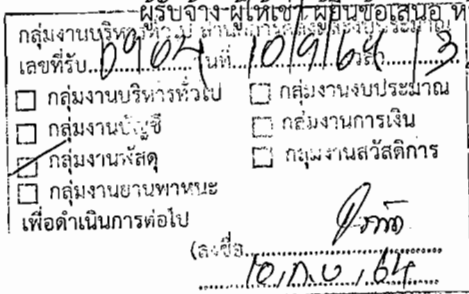 ผู้รับจ้าง ผู้ให้เช่า ผู้ยื่นข้อเสนอ
กลุ่มงานบริหารทั่วไป
เลขที่รับ 0904 วันที่ 10/9/64
☐ กลุ่มงานบริหารทั่วไป ☐ กลุ่มงานงบประมาณ
☐ กลุ่มงานบัญชี ☐ กลุ่มงานการเงิน
☐ กลุ่มงานพัสดุ ☐ กลุ่มงานสวัสดิการ
☐ กลุ่มงานยานพาหนะ
เพื่อดำเนินการต่อไป
(ลงชื่อ
10 ก.ย. 64